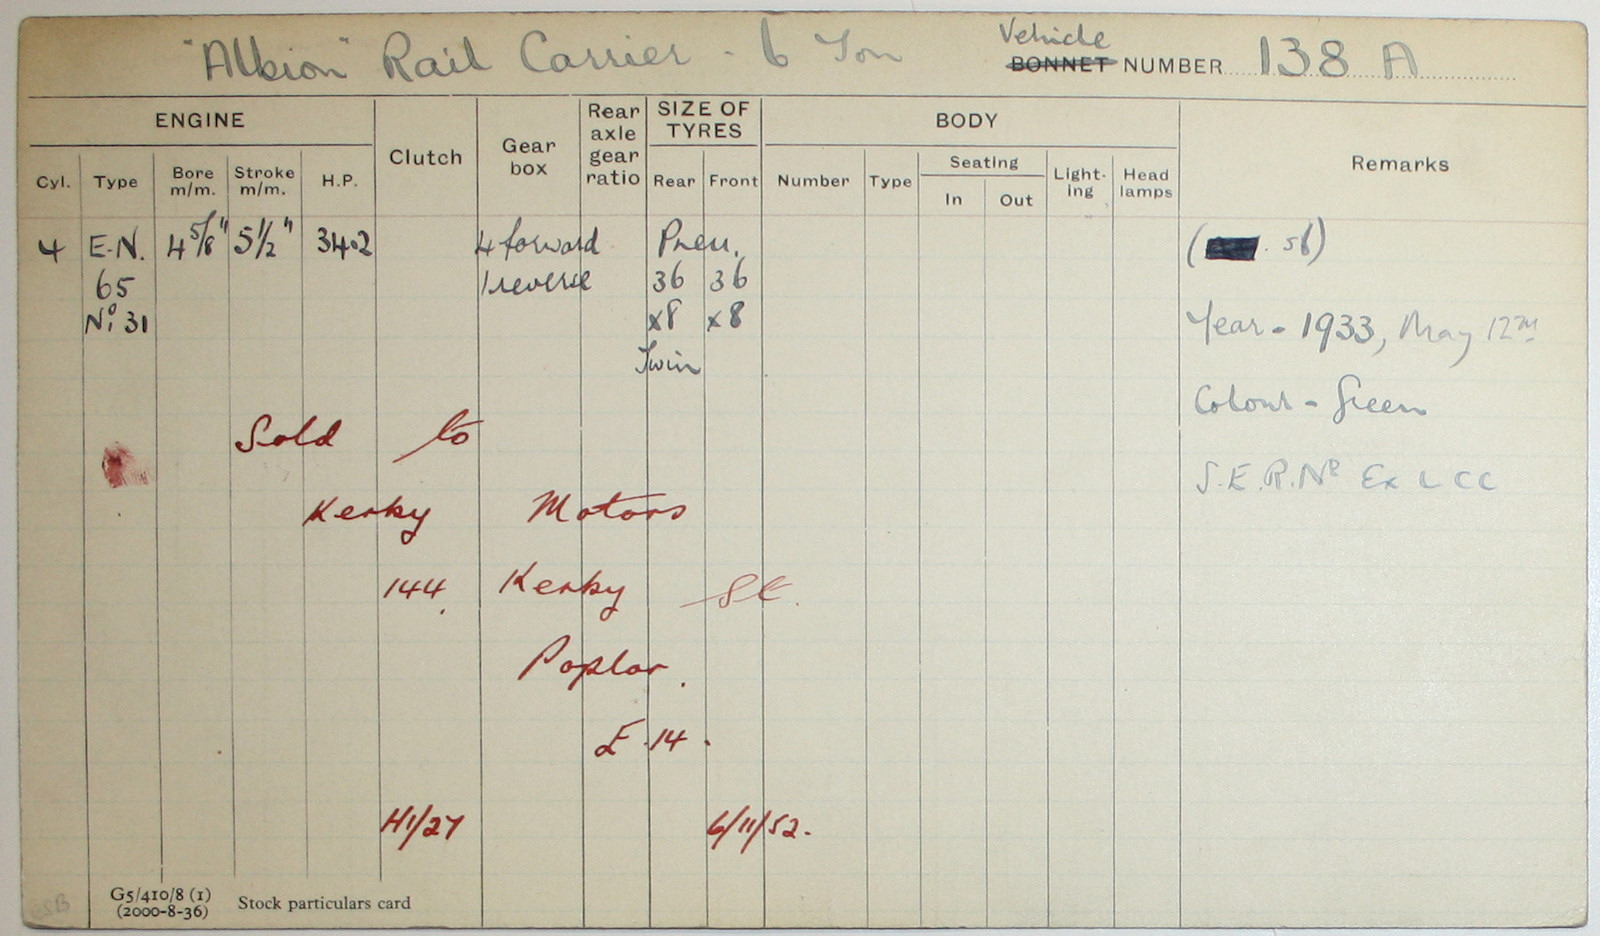 "Albion" Rail Carrier - 6 Ton
Vehicle
BONNET NUMBER 138 A
ENGINE
Clutch
Gear box
Rear axle gear ratio
SIZE OF TYRES
BODY
Remarks
Cyl. Type Bore m/m. Stroke m/m. H.P. Rear Front Number Type Seating In Out Light-ing Head lamps
4 E.N. 4 5/8" 5 1/2" 34.2 4 forward Pneu.
65 1 reverse 36 36
No. 31 x8 x8
Twin
Year - 1933, May 12th
Colour - Green
S.E.R. No Ex L C C
Sold to
Kerby Motors
144 Kerby St.
Poplar.
E.14.
H1/27 6/11/52.
G5/410/8 (1)
(2000-8-36) Stock particulars card